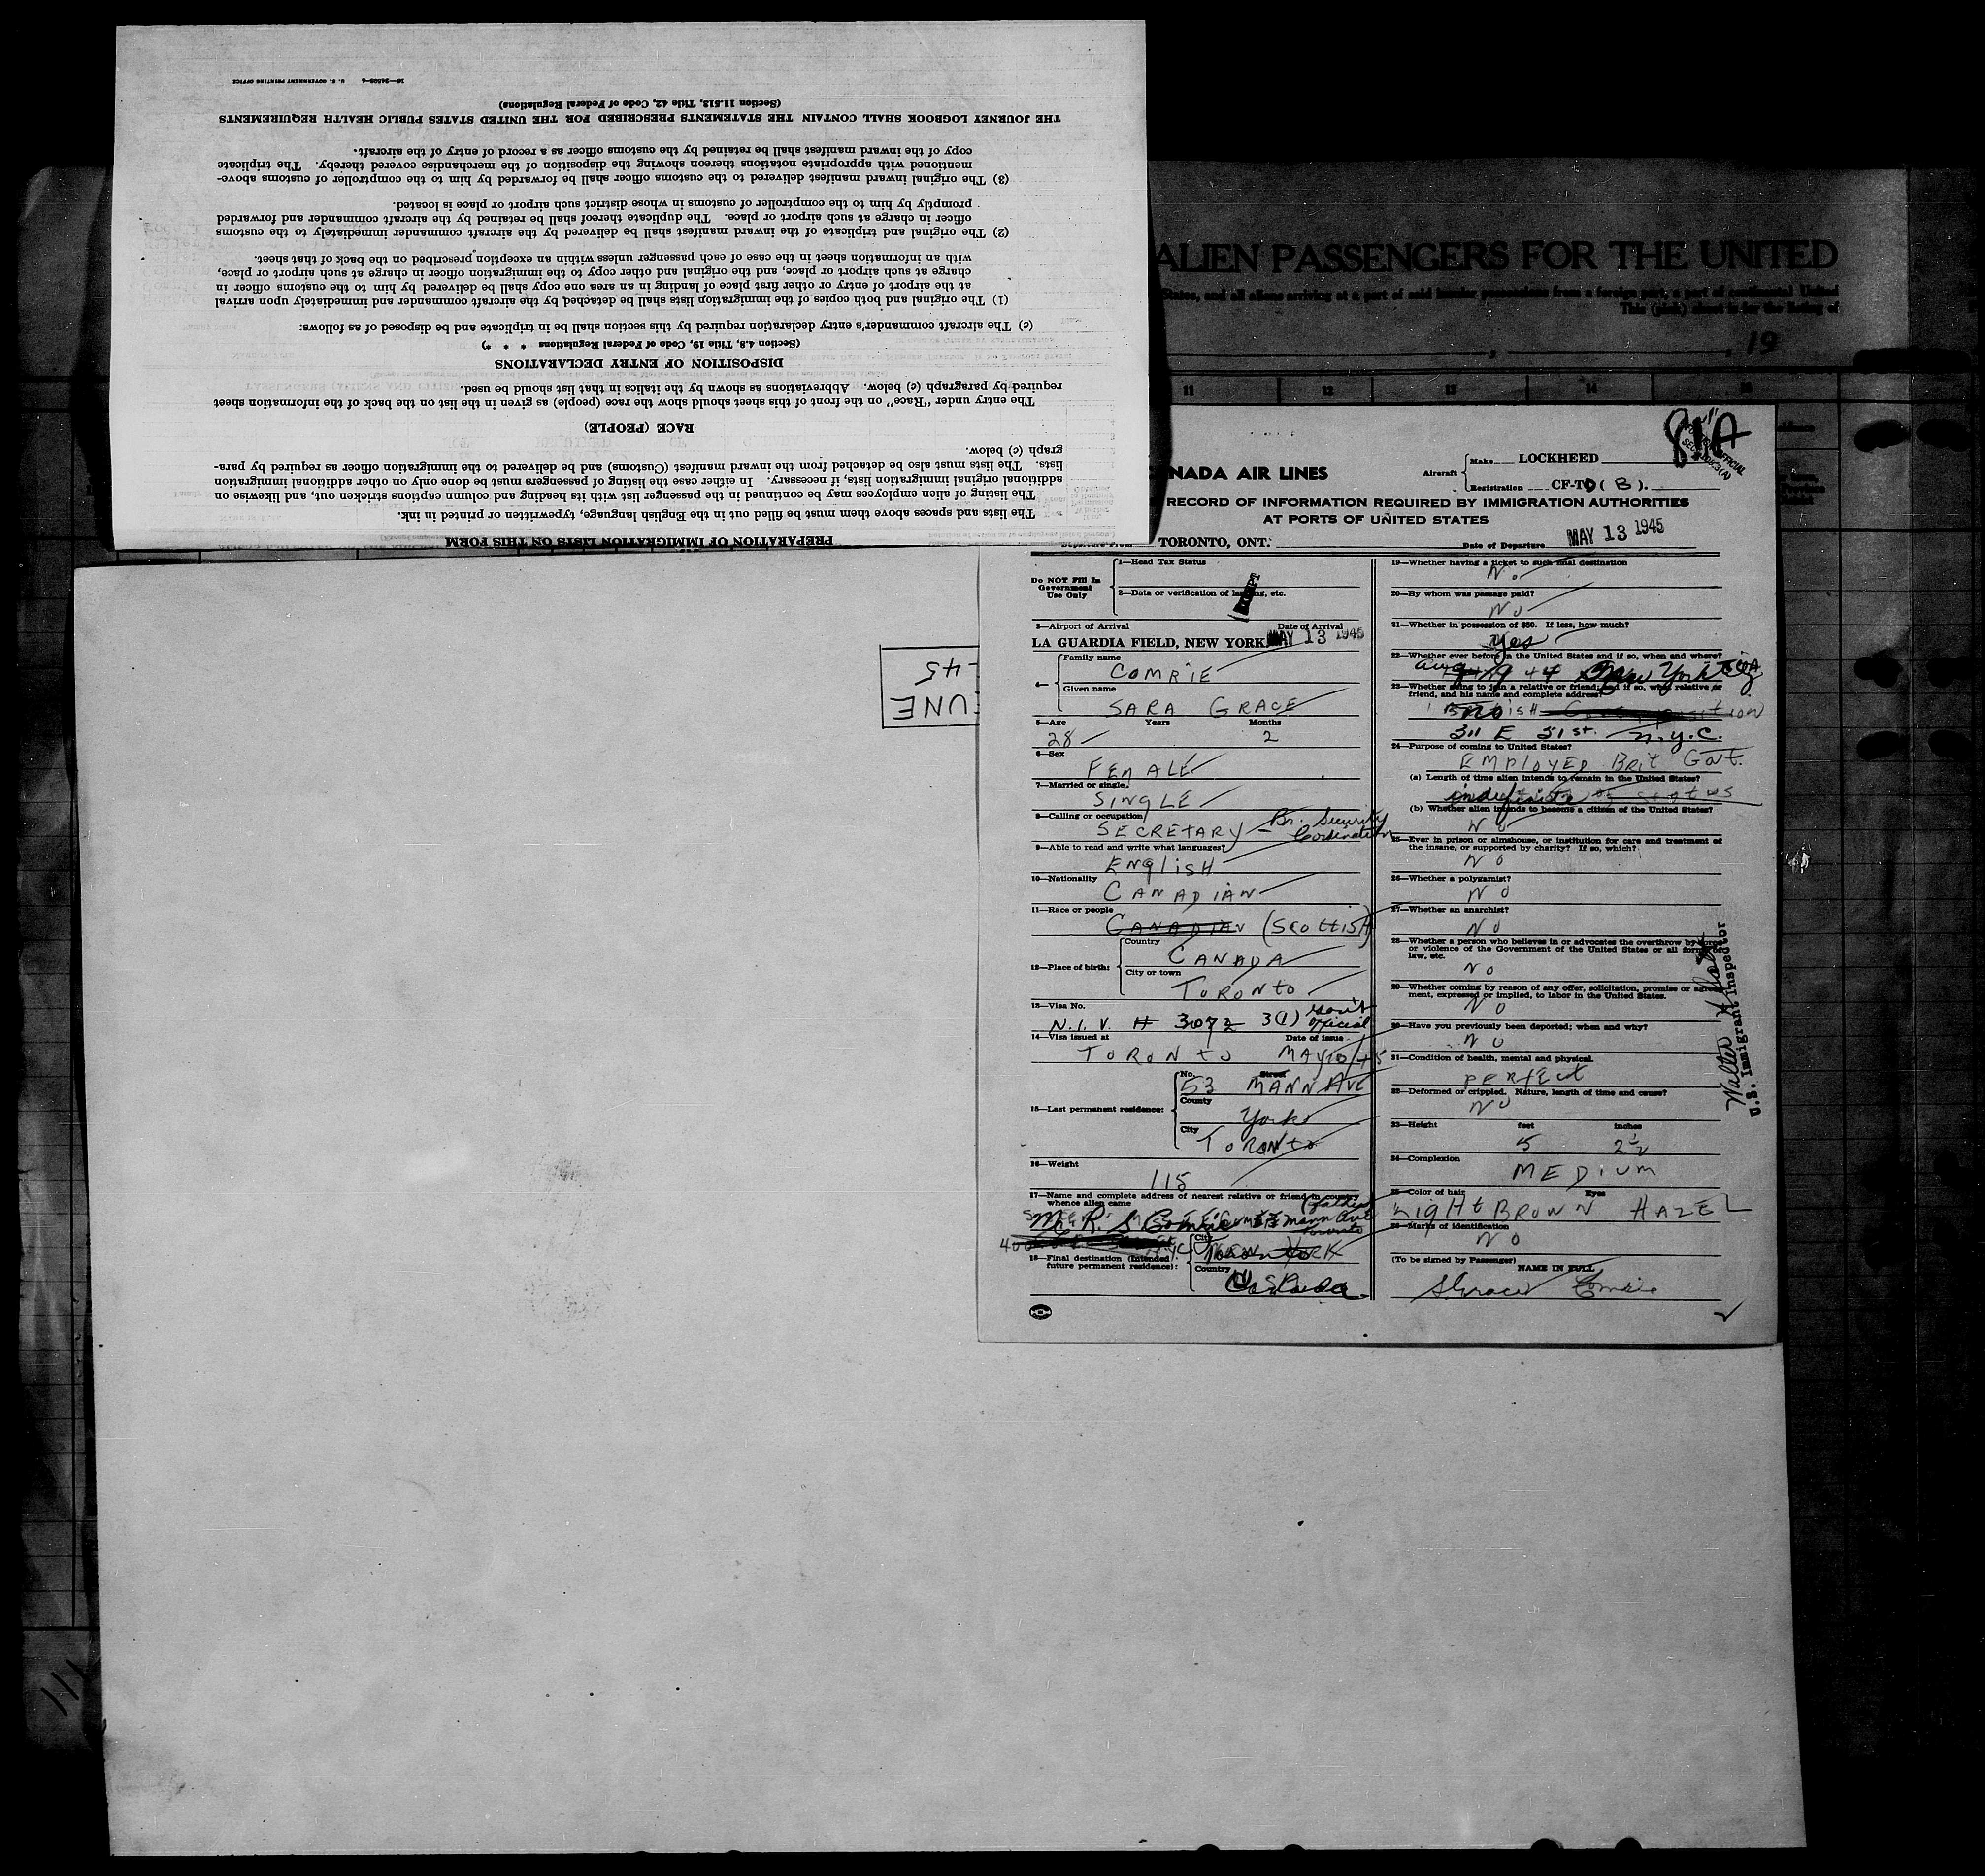 PREPARATION OF IMMIGRATION LISTS ON THIS FORM
The lists and spaces above them must be filled out in the English language, typewritten or printed in ink.
The listing of alien employees may be continued in the passenger list with its heading and column captions stricken out, and likewise on
additional original immigration lists, if necessary. In either case the listing of passengers must be done only on other additional immigration
lists. The lists must also be detached from the inward manifest (Customs) and be delivered to the immigration officer as required by para-
graph (c) below.
RACE (PEOPLE)
The entry under "Race" on the front of this sheet should show the race (people) as given in the list on the back of the information sheet
required by paragraph (c) below. Abbreviations as shown by the italics in that list should be used.
DISPOSITION OF ENTRY DECLARATIONS
(Section 4.8, Title 19, Code of Federal Regulations * * *)
(c) The aircraft commander's entry declaration required by this section shall be in triplicate and be disposed of as follows:
(1) The original and both copies of the immigration lists shall be detached by the aircraft commander and immediately upon arrival
at the airport of entry or other first place of landing in an area one copy shall be delivered by him to the customs officer in
charge at such airport or place, and the original and other copy to the immigration officer in charge at such airport or place,
with an information sheet in the case of each passenger unless within an exception prescribed on the back of that sheet.
(2) The original and triplicate of the inward manifest shall be delivered by the aircraft commander immediately to the customs
officer in charge at such airport or place. The duplicate thereof shall be retained by the aircraft commander and forwarded
promptly by him to the comptroller of customs in whose district such airport or place is located.
(3) The original inward manifest delivered to the customs officer shall be forwarded by him to the comptroller of customs above-
mentioned with appropriate notations thereon showing the disposition of the merchandise covered thereby. The triplicate
copy of the inward manifest shall be retained by the customs officer as a record of entry of the aircraft.
THE JOURNEY LOGBOOK SHALL CONTAIN THE STATEMENTS PRESCRIBED FOR THE UNITED STATES PUBLIC HEALTH REQUIREMENTS
(Section 11.513, Title 42, Code of Federal Regulations)
U. S. GOVERNMENT PRINTING OFFICE
ALIEN PASSENGERS FOR THE UNITED
States, and all aliens arriving at a port of said insular possessions from a foreign port, a port of continental United
This (pink) sheet is for the listing of
, 19
11 12 13 14 15
UNE
45
81A
NADA AIR LINES
Aircraft
Make LOCKHEED
Registration CF-T
RECORD OF INFORMATION REQUIRED BY IMMIGRATION AUTHORITIES
AT PORTS OF UNITED STATES
TORONTO, ONT.
Date of Departure MAY 13 1945
Do NOT Fill In
Government
Use Only
1—Head Tax Status
2—Data or verification of landing, etc.
3—Airport of Arrival Date of Arrival
LA GUARDIA FIELD, NEW YORK MAY 13 1945
4—
Family name
COMRIE
Given name
SARA GRACE
5—Age Years Months
28 2
6—Sex
FEMALE
7—Married or single
SINGLE
8—Calling or occupation
SECRETARY - Br. Security
Cordination
9—Able to read and write what languages?
ENGLISH
10—Nationality
CANADIAN
11—Race or people
CANADIAN (SCOTTISH)
12—Place of birth:
Country
CANADA
City or town
TORONTO
13—Visa No.
N.I.V. # 3072 3(1) Gov't
official
14—Visa issued at Date of issue
TORONTO MAY 10/45
15—Last permanent residence:
No. Street
53 MANN AVE
County
York
City
TORONTO
16—Weight
115
17—Name and complete address of nearest relative or friend in country
whence alien came
(father)
Mr. R. S Comrie Mann Ave
Toronto
18—Final destination (intended
future permanent residence):
City
NEW YORK
Country
19—Whether having a ticket to such final destination
No
20—By whom was passage paid?
No
21—Whether in possession of $50. If less, how much?
yes
22—Whether ever before in the United States and if so, when and where?
Aug 44 New York City
23—Whether going to join a relative or friend; and if so, what relative or
friend, and his name and complete address?
no
311 E 51st. N.Y.C.
24—Purpose of coming to United States?
EMPLOYED BRIT GOVT.
(a) Length of time alien intends to remain in the United States?
indefinite
(b) Whether alien intends to become a citizen of the United States?
NO
25—Ever in prison or almshouse, or institution for care and treatment of
the insane, or supported by charity? If so, which?
NO
26—Whether a polygamist?
NO
27—Whether an anarchist?
NO
28—Whether a person who believes in or advocates the overthrow by force
or violence of the Government of the United States or all forms of
law, etc.
NO
29—Whether coming by reason of any offer, solicitation, promise or agree-
ment, expressed or implied, to labor in the United States.
NO
30—Have you previously been deported; when and why?
NO
31—Condition of health, mental and physical.
PERFECT
32—Deformed or crippled. Nature, length of time and cause?
NO
33—Height feet inches
5 2½
34—Complexion
MEDIUM
35—Color of hair Eyes
LIGHT BROWN HAZEL
36—Marks of identification
NO
(To be signed by Passenger) NAME IN FULL
S. Grace Comrie
Walter H
U.S. Immigrant Inspector